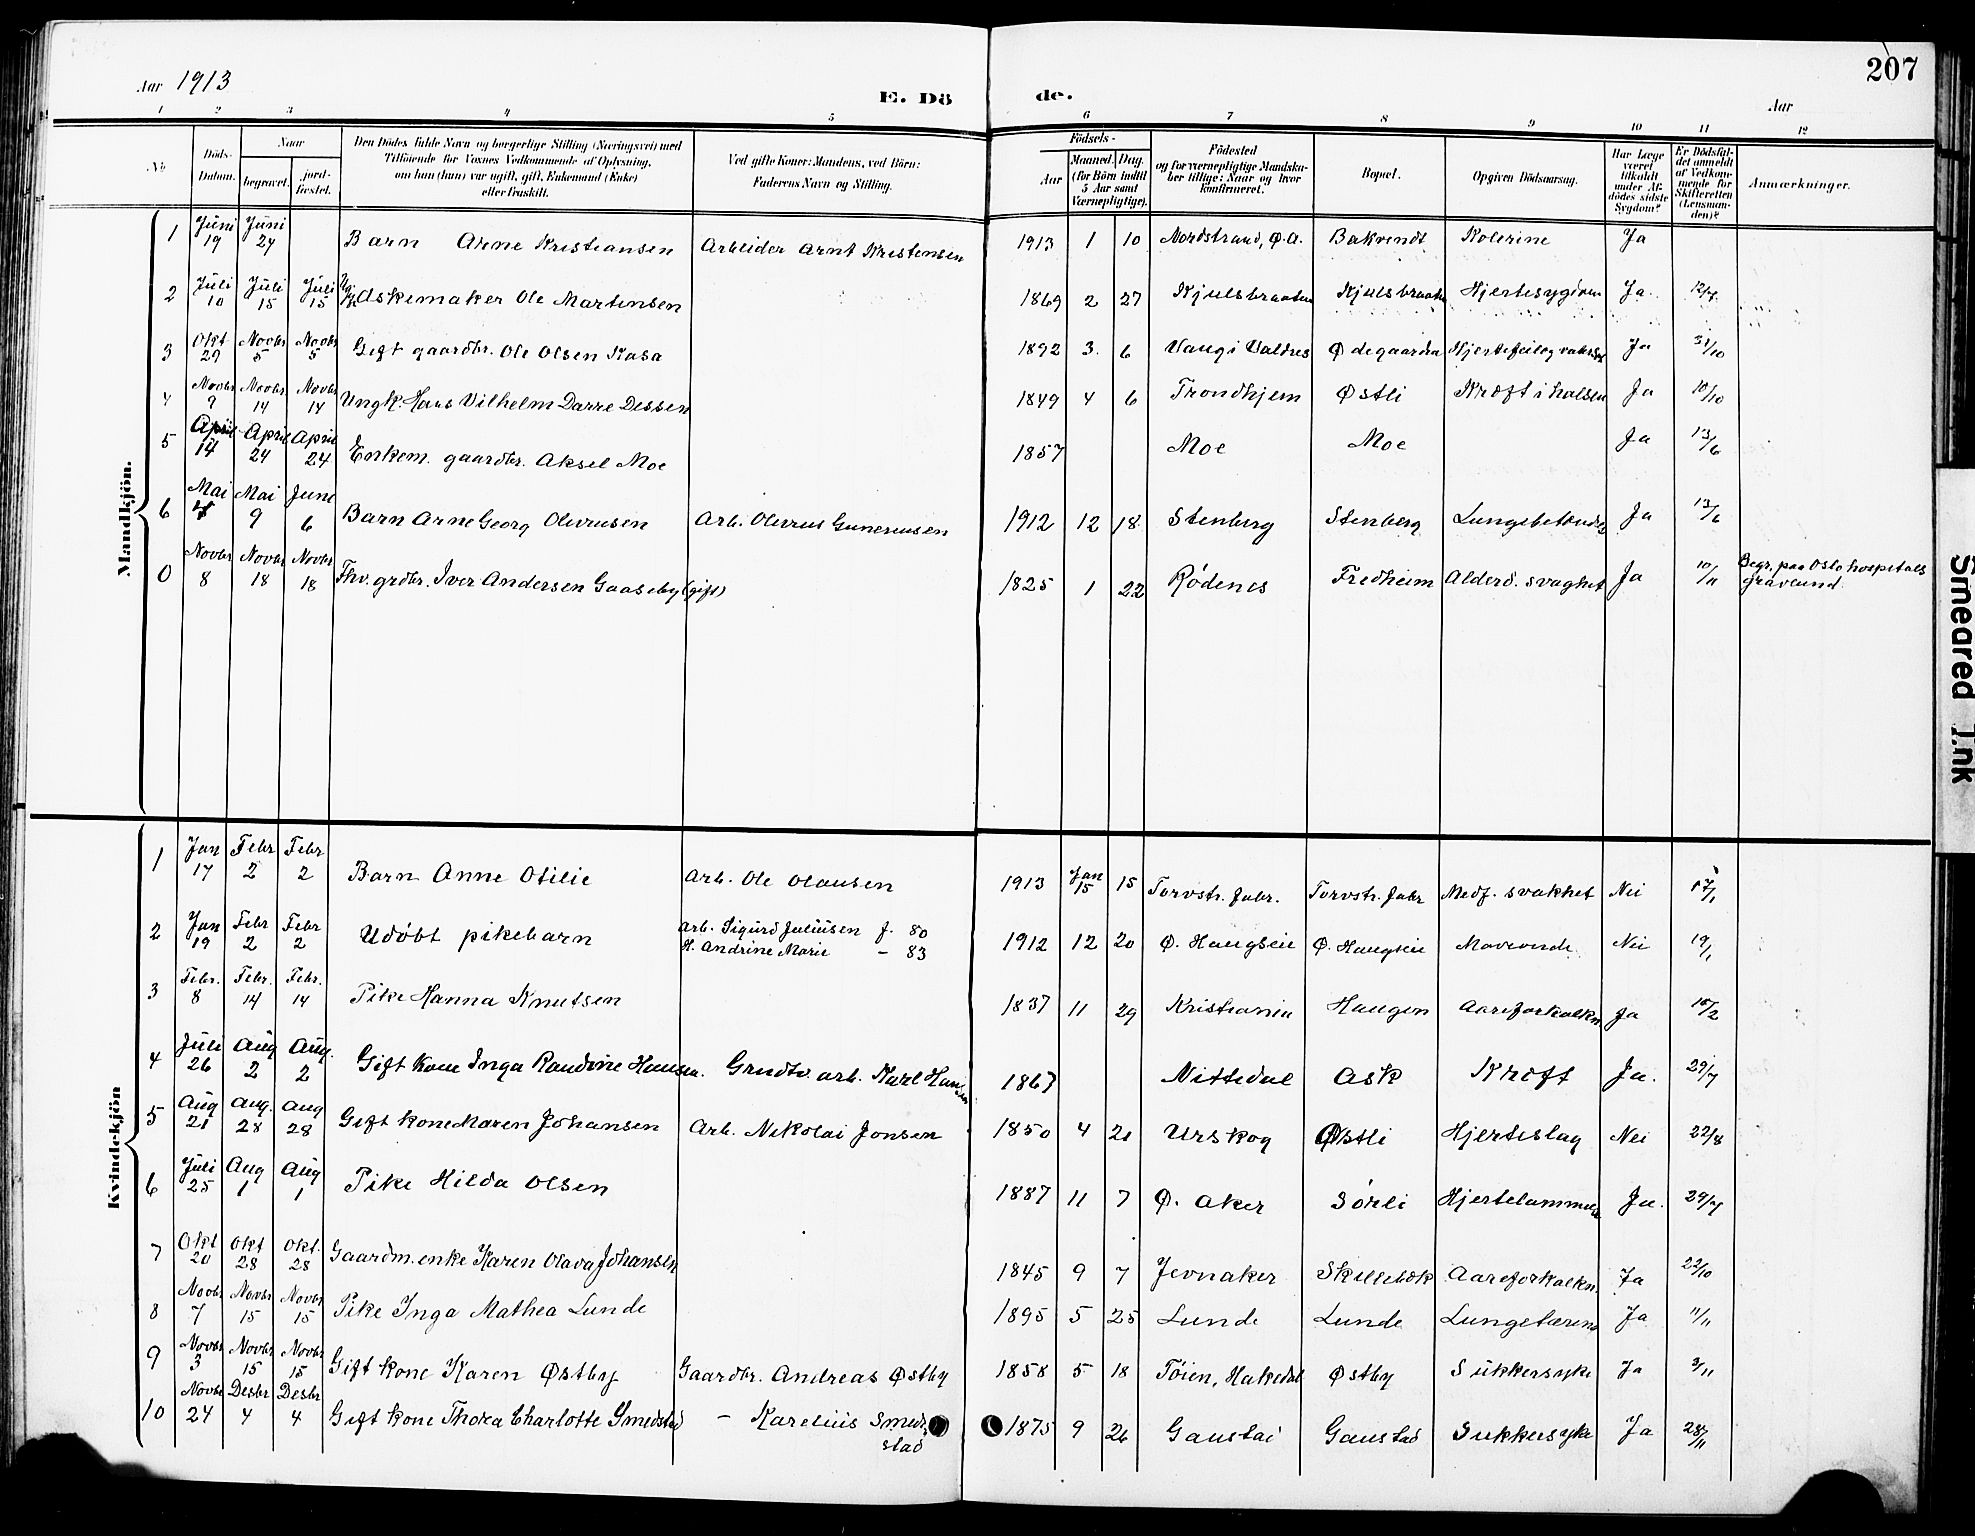 Aar 1913
E. Dö de.
Aar
207
1 2 3 4 5 6 7 8 9 10 11 12
No
Döds-Datum.
Naar
begravet.
jord-fæstet.
Den Dödes fulde Navn og borgerlige Stilling (Næringsvei) med
Tilföiende for Voxnes Vedkommende af Oplysning,
om han (hun) var ugift, gift, Enkemand (Enke)
eller fraskilt.
Ved gifte Koner: Mandens, ved Börn:
Faderens Navn og Stilling.
Födsels-
Aar
Maaned. Dag.
(for Börn indtil
5 Aar samt
Værnepligtige).
Födested
og for værnepligtige Mandska-
ber tillige: Naar og hvor
konfirmeret.
Bopæl.
Opgiven Dödsaarsag.
Har Læge
været
tilkaldt
under Af-
dödes sidste
Sygdom?
Er Dödsfal-
det anmeldt
af Vedkom-
mende for
Skifteretten
(Lensman-
den)?
Anmærkninger.
Mandkjön.
1 Juni 19 Juni 24 Barn Arne Kristiansen Arbeider Arnt Kristensen 1913 1 10 Nordstrand, Ø.A. Bakvendt Kolerine Ja
2 Juli 10 Juli 15 Juli 15 Askemaker Ole Martinsen 1869 2 27 Kjulsbraaten Kjulsbraaten Hjertesygdom Ja 12/7
3 Okt 29 Novbr 5 Novbr 5 Gift gaardbr. Ole Olsen Kasa 1892 3. 6 Vang i Valdres Ødegaarden Hjertefeil og Ja 31/10
4 Novbr 9 Novbr 14 Novbr 14 Ungk. Hans Vilhelm Darre Dessen 1849 4 6 Trondhjem Østli Kræft i halsen Ja 10/10
5 April 14 April 24 April 24 Enkem. gaardbr. Aksel Moe 1857 Moe Moe Ja 13/6
6 Mai Mai 9 June 6 Barn Arne Georg Oliverusen Arb. Oliverus Guneriusen 1912 12 18 Stenberg Stenberg Lungebetendse Ja 13/6
0 Novbr 8 Novbr 18 Novbr 18 Fhv. grdbr. Iver Andersen Gaaseby (gift) 1825 1 22 Rödenes Fredheim Alderd. svaghet Ja 10/11 Begr. paa Oslo hospitals
gravlund.
Kvindekjön
1 Jan 17 Febr 2 Febr 2 Barn Anne Otilie Arb. Ole Olausen 1913 Jan 15 15 Torvstr. fabr. Torvstr. fabr Medf. svakhet Nei 17/1
2 Jan 19 Febr 2 Febr 2 Udöbt pikebarn Arb. Sigurd Juliusen f. 80
H. Andrine Marie - 83 1912 12 20 Ø. Haugseie Ø. Haugseie Maveonde Nei 19/1
3 Febr. 8 Febr. 14 Febr. 14 Pike Hanna Knutsen 1837 11 29 Kristiania Haugen Aareforkalkn Ja 10/2
4 Juli 26 Aug 2 Aug. 2 Gift kone Inga Randine Hansen. Grudtv. arb. Karl Hansen 1867 Nittedal Ask Kræft Ja. 29/7
5 Aug 21 Aug. 28 Aug 28 Gift kone Maren Johansen Arb. Nikolai Jonsen 1850 4 21 Urskog Østli Hjerteslag Nei 22/8
6 Juli 25 Aug 1 Aug 1 Pike Hilda Olsen 1887 11 7 Ø. Aker Sörli Hjertelammelse Ja. 29/7
7 Okt 20 Okt 28 Okt. 28 Gaardm. enke Karen Olava Johansen 1845 9 7 Jevnaker Skillebæk Aareforkalkn. Ja 22/10
8 Novbr 7 Novbr 15 Novbr 15 Pike Inga Mathea Lunde 1895 5 25 Lunde Lunde Lungetæring Ja 11/11
9 Novbr 3 Novbr 15 Novbr 15 Gift kone Karen Østby Gaardbr. Andreas Østby 1858 5 18 Töien, Hakedal Østby Sukkersyke Ja 3/11
10 Novbr 24 Desbr 4 Desbr 4 Gift kone Thora Charlotte Smedstad - Karelius Smed-
stad 1875 9 26 Gaustad Gaustad Sukkersyke Ja 28/11
Smeared Ink